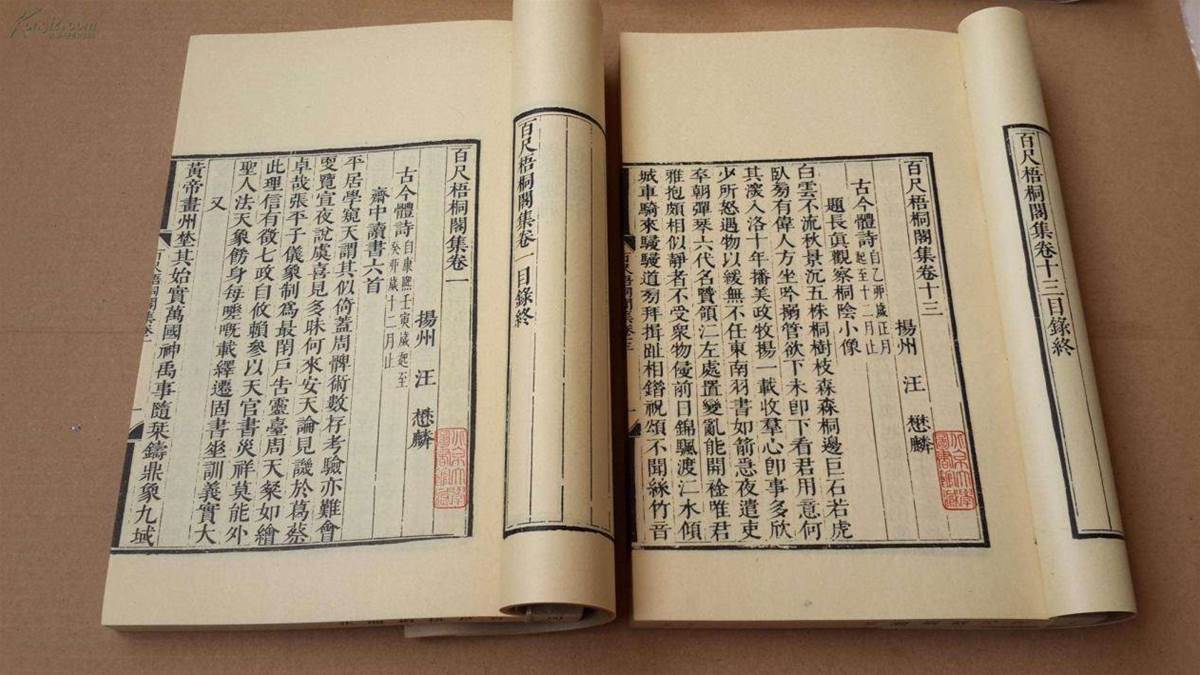 百尺梧桐閣集卷一目錄終
百尺梧桐閣集卷一
揚州 汪 懋麟
古今體詩 自康熙壬寅歲起至
癸卯歲十二月止
齋中讀書六首
平居學窺天謂其似倚蓋周髀術數存考驗亦難會
覽宣夜說虞喜見多昧何來安天論見譏於葛蔡
卓哉張平子儀象制爲最閉戶告靈臺周天粲如繪
此理信有徵七政自攸賴參以天官書災祥莫能外
聖人法天象飭身每嘅載繹遷固書坐訓義實大
又
黃帝畫州埜其始實萬國神禹事隨栞鑄鼎象九域
百尺梧桐閣集卷一
北京大學
圖書館藏
百尺梧桐閣集卷十三目錄終
百尺梧桐閣集卷十三
揚州 汪 懋麟
古今體詩 自乙卯歲正月
起至十二月止
題長眞觀察桐陰小像
白雲不流秋景沉五株桐樹枝森森桐邊巨石若虎
臥旁有偉人方坐吟搦管欲下未卽下看君用意何
其深入洛十年播美政牧揚一載收羣心卽事多欣
少所怒遇物以緩無不任東南羽書如箭急夜遣吏
卒朝彈琴六代名賢領江左處置變亂能開襟唯君
雅抱頗相似靜者不受衆物侵前日錦颿渡江水傾
城車騎來騤騤道旁拜揖趾相錯祝頌不聞絲竹音
北京大學
圖書館藏